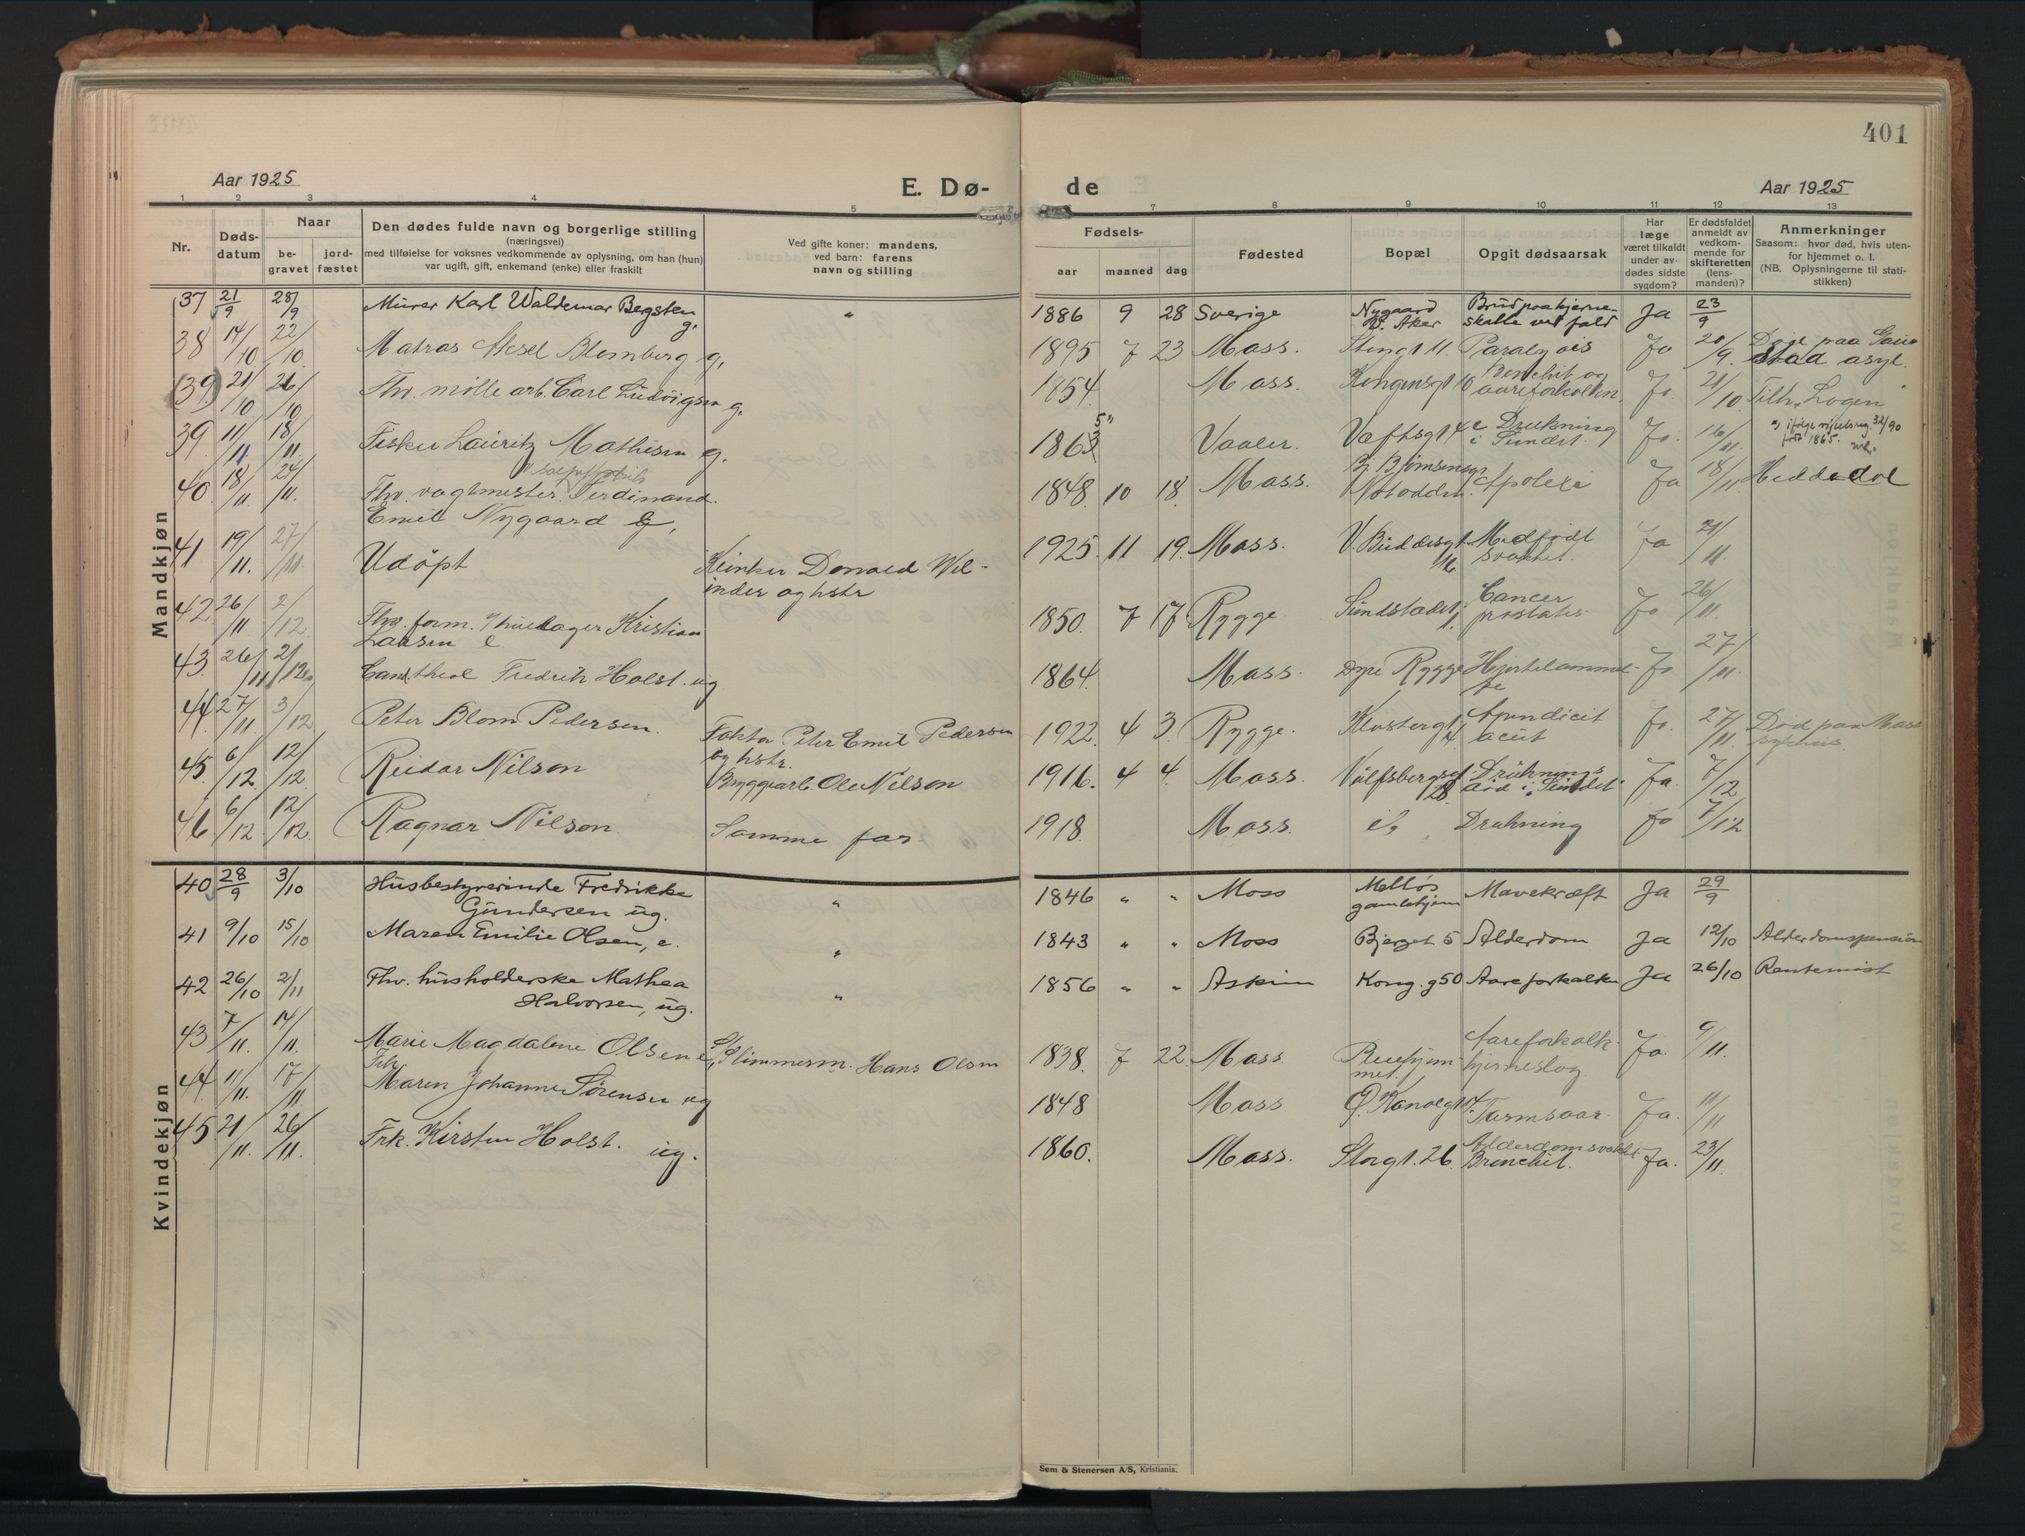 401
Aar 1925
E. Dø-
de
Aar 1925
1 2 3 4 5 7 8 9 10 11 12 13
Nr.
Døds-
datum
Naar
be-
gravet
jord-
fæstet
Den dødes fulde navn og borgerlige stilling
(næringsvei)
med tilføielse for voksnes vedkommende av oplysning, om han (hun)
var ugift, gift, enkemand (enke) eller fraskilt
Ved gifte koner: mandens,
ved barn: farens
navn og stilling
Fødsels-
aar maaned dag
Fødested
Bopæl
Opgit dødsaarsak
Har
læge
været tilkaldt
under av-
dødes sidste
sygdom?
Er dødsfaldet
anmeldt av
vedkom-
mende for
skifteretten
(lens-
manden)?
Anmerkninger
Saasom: hvor død, hvis uten-
for hjemmet o. l.
(NB. Oplysningerne til stati-
stikken)
Mandkjøn
37 21/9 28/9 Murer Karl Waldemar Bergsten g. " 1886 9 28 Sverige Nygaard Ø. Aker Brud paa hjerne-
skalle ved fald Ja 23/9
38 14/10 22/10 Matros Aksel Blomberg g, 1895 7 23 Moss. 11. Paralysis Ja 20/9. Døde paa Gau
stad asyl.
(39) 21/10 26/10 Fhv. mølle arb. Carl Ludvigsen g. 1854. Moss. Kongensgt 10 Bronchit og
aareforkalkn. Ja. 21/10 Tilh. Logen
39. 11/11 18/11. Fisker Lauritz Mathisen g. 1863 5" Vaaler. 4c Drukning
i Sundet. Ja. 16/11. ifølge 32/90
født 1865.
40. 18/11 24/11. Fhv. vagtmester Ferdinand
Emil Nygaard G, 1848. 10 18. Moss. Bj. Bjørnsensgt
Notodden. Apolexi Ja 18/11 Heddedal
41 19/11. 27/11 Udøpt Donald Wel-
inder og hstr 1925. 11 19. Moss. V. Buddesgt
16 Medfødt
svakhet Ja 21/11.
42. 26/11 2/12. Fhv. form. Kristian
Larsen e 1850. 7 17 Rygge Cancer
prostates Ja 26/11.
43. 26/11 2/12 Cand theol Fredrik Holst. ug 1864. Moss. Dyre Rygge Hjertelammel-
se Ja 27/11.
44. 27/11 3/12 Peter Blom Pedersen. Faktor Peter Emil Pedersen
og hstr. 1922. 4 3. Rygge. Klostergt. 4 Apendicit
acut Ja. 27/11. Død paa Moss
sykehus.
45. 6/12. 12/12. Reidar Nilson Byggearb. Ole Nilson 1916. 4 4. Moss. Vulfsbergsgt.
28 Drukning Ja. 7/12
46 6/12 12/12. Ragnar Nilson. Samme far. 1918. Moss. Drukning Ja 7/12
Kvindekjøn
40 28/9 3/10 Husbestyrerinde Fredrikke
Gundersen ug. " 1846 " " Moss Melløs
gamlehjem Mavekræft Ja 29/9
41 9/10 15/10 Maren Emilie Olsen, e. " 1843 " " Moss Bjerget 5 Alderdom Ja 12/10 Alderdomspension
42 26/10 2/11 Fhv. husholderske Mathea
Halvorsen, ug. " 1856 " " Askim Kong. g 50 Aareforkalkn Ja 26/10 Rentenist
43 7/11. 14/11. Marie Magdalene Olsen e, Hans Olsen 1838. 7 22. Moss. Pleiehjem-
met. Aareforkalk-
hjerneslag Ja. 9/11.
44. 11/11. 17/11. Frk.
Maren Johanne Sørensen ug 1848 Moss. Ø. Kanalgt 4. Tarmsaar. Ja. 11/11
45. 21/11. 26/11. Frk. Kirsten Holst. ug. 1860. Moss. Storgt. 26. Alderdomsvakh.
Bronchit. Ja. 23/11.
Sem & Stenersen A/S, Kristiania.